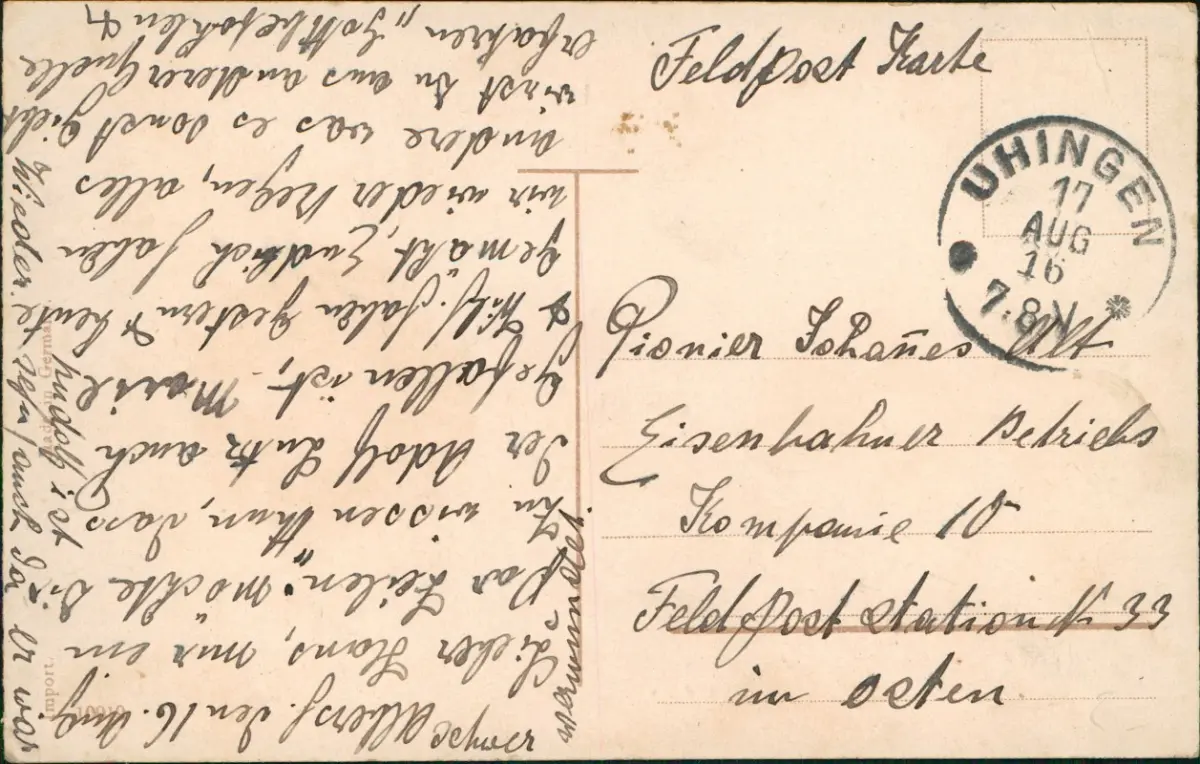 Feldpost Karte
UHINGEN
17
AUG
16
7-8 N
Pionier Johañes Alt
Eisenbahner Betriebs
Kompanie 10
Feldpost station N 33
im osten.
Albersh. den 16. Aug
Lieber Hans, nur ein
par Zeilen; möchte Dir
zu wissen thun, dass
der Adolf Lutz auch
gefallen ist, Marie
& Wilh. haben gestern & heute
gemäht, Endlich haben
wir wieder Regen, alles
andere was es sonst gibt
wirst du aus anderer Quelle
erfahren, „Gott befohlen &
Wieder
Rudolf ist
auch da Er war
schwer
verwundet
Import.